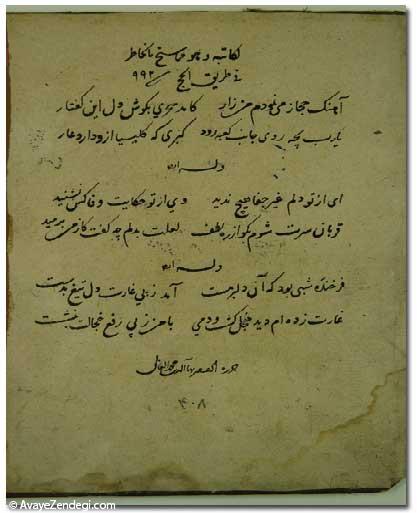 لکاتبه و هو مما سنح بالخاطر
فی طریق الحج سنه ۹۹۲
آهنگ حجاز می نمودم من زار کامد سحری بکوش دل این کفتار
یارب بچه روی جانب کعبه رود کبری که کلیسیا ازو دارد عار
وله ایضا
ای از تو دلم غیر جفا هیچ ندید وی از تو حکایت وفا کس نشنید
قربان سرت شوم بکو از ره لطف لعلت بدلم چه کفت کز من برمید
وله ایضا
فرخنده شبی بود که آن دلبر مست آمد ز پی غارت دل تیغ بدست
غارت زده ام دید خجل کشت و دمی با من ز پی رفع خجالت بنشست
حرره الفقیر بهاء الدین محمد العاملی
۴۰۸
© AvayeZendegi.com